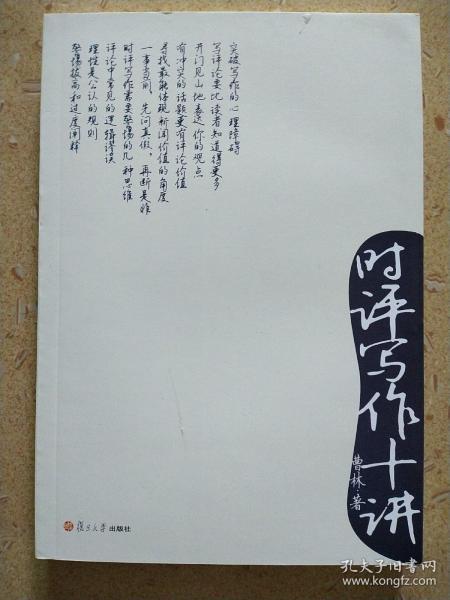 突破写作的心理障碍
写评论要比读者知道得更多
开门见山地表达你的观点
有冲突的话题更有评论价值
寻找最能体现新闻价值的角度
一事当前,先问真假,再断是非
时评写作需要警惕的几种思维
评论中常见的逻辑谬误
理性是公认的规则
警惕拔高和过度阐释
时评写作十讲
曹林·著
复旦大学出版社
孔夫子旧书网
www.kongfz.com